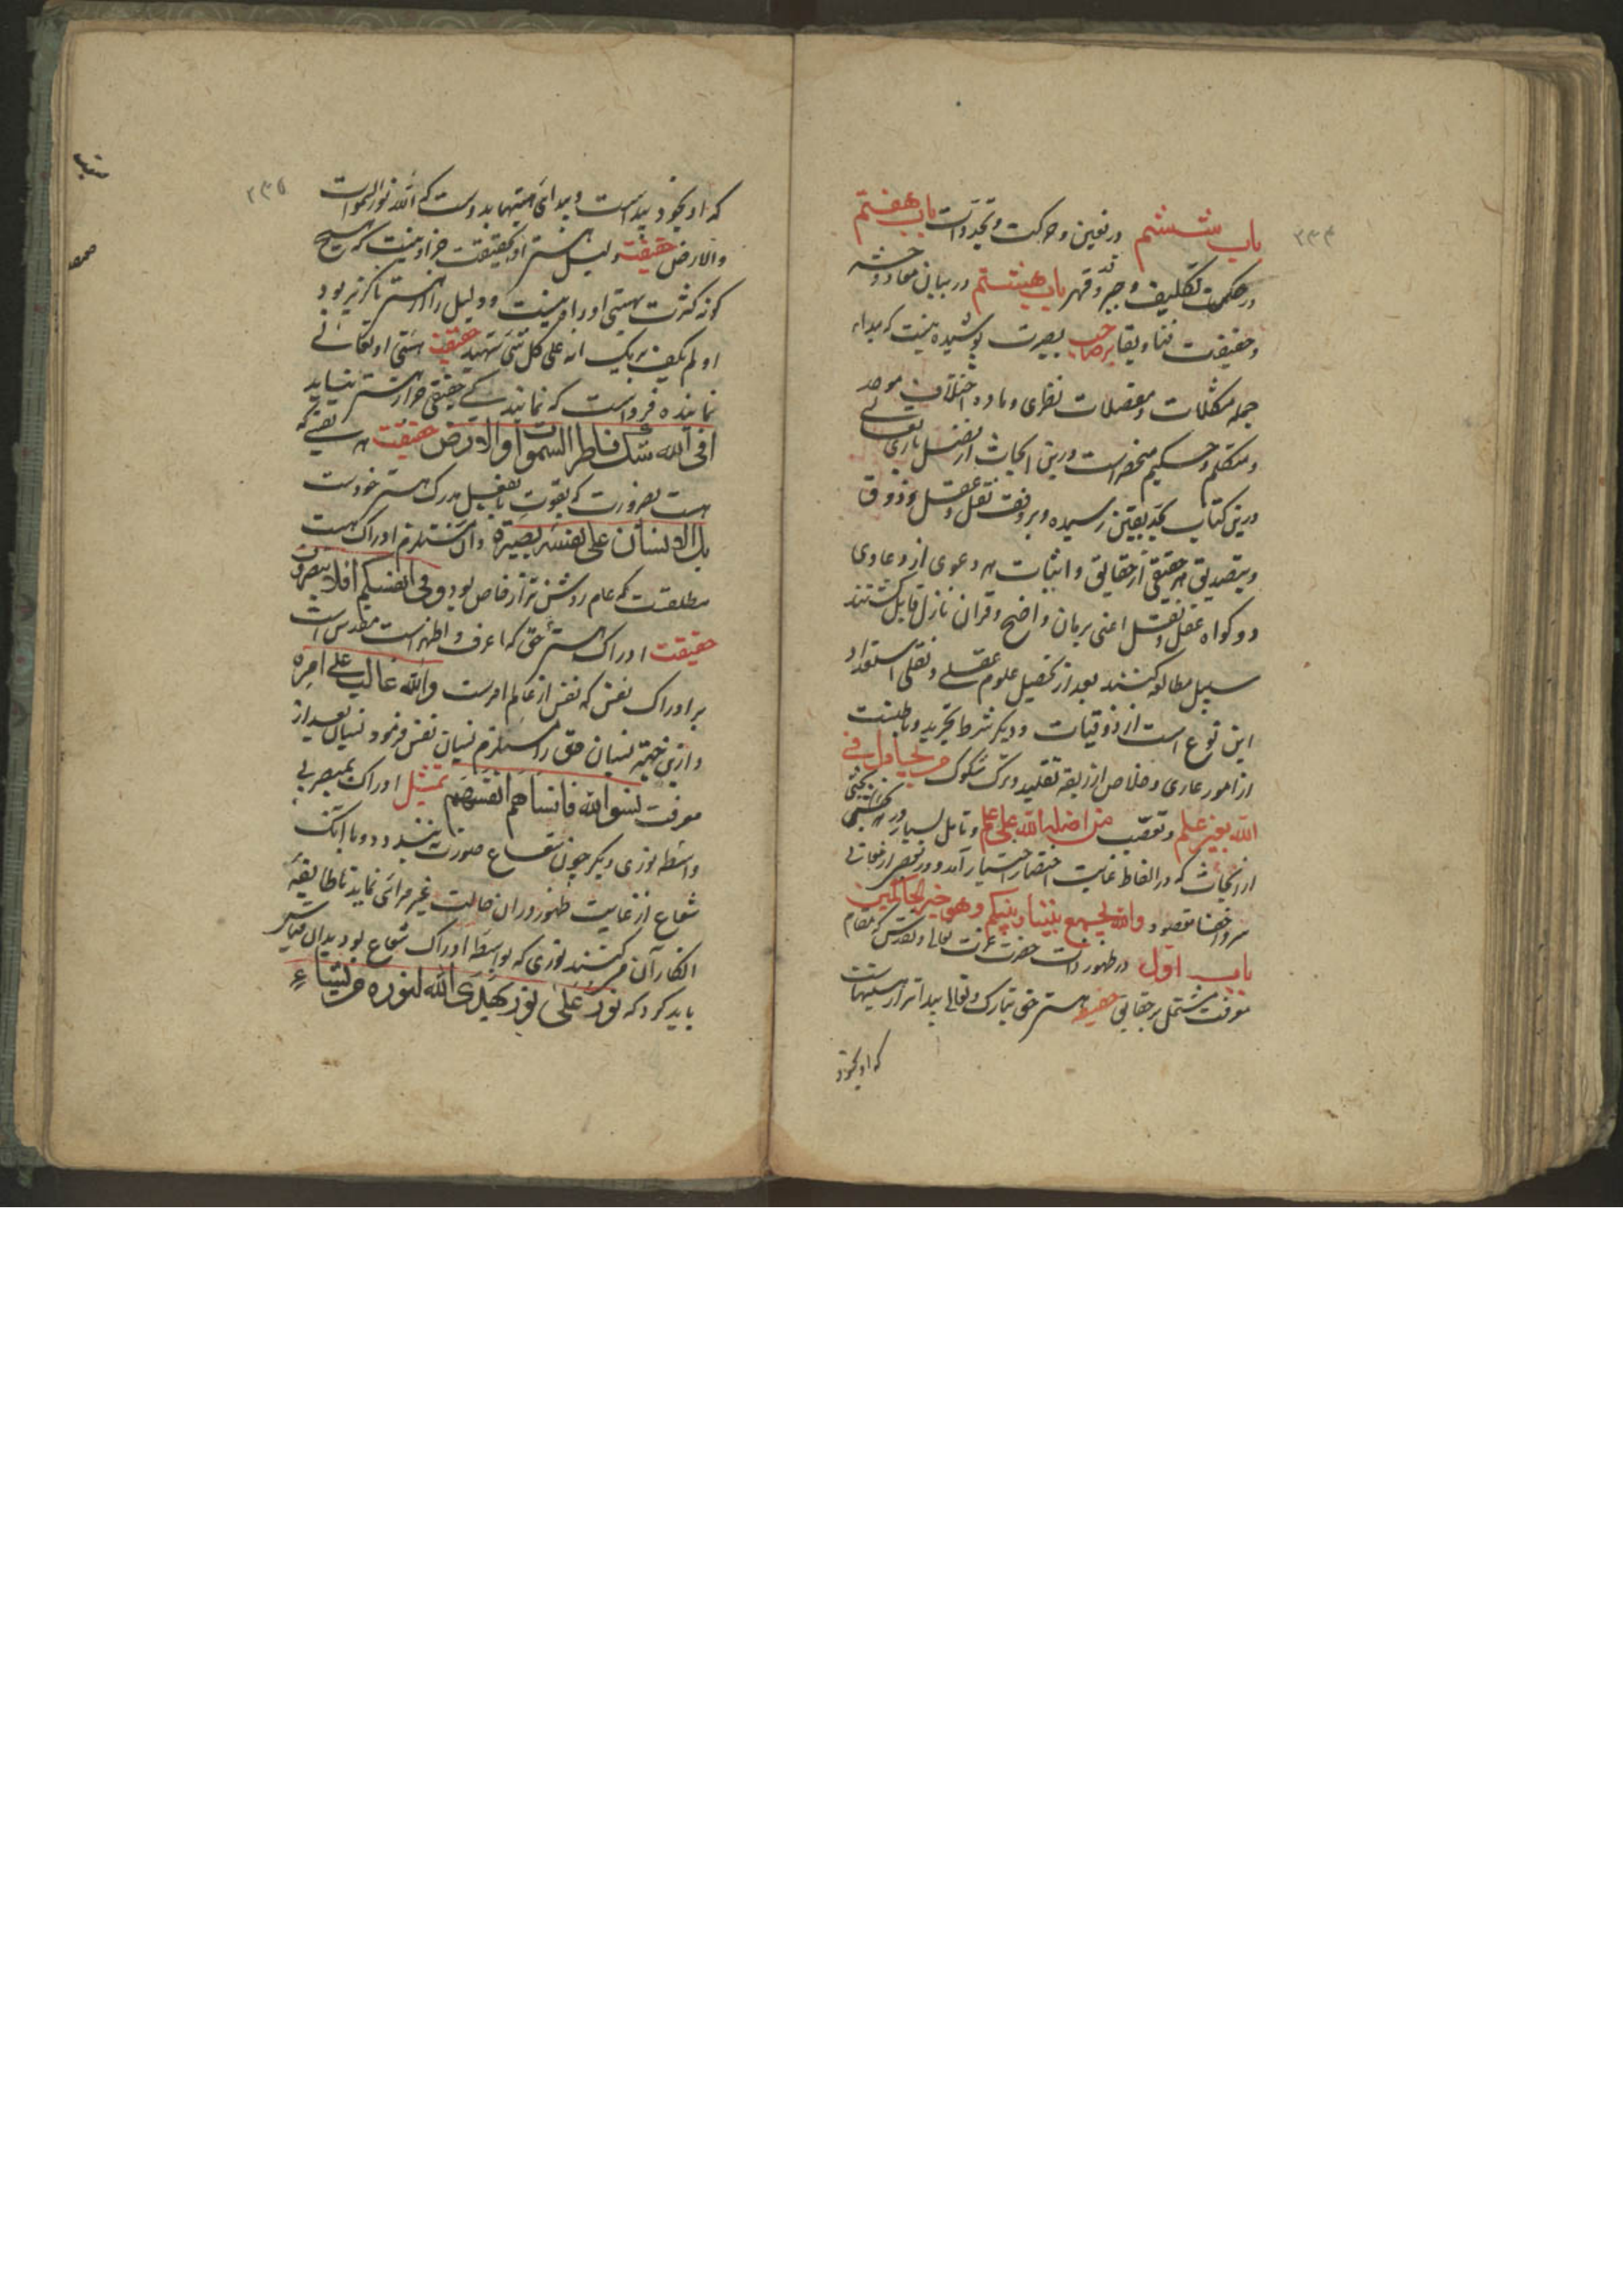 ۲۳۴
باب ششم در تعین و حرکت و تجددات باب هفتم
در حکمت تکلیف و جبر و قدر و قهر باب هشتم در بیان معاد و حشر
و حقیقت فنا و بقا بر صاحب بصیرت پوشیده نیست که مدار
جمله مشکلات و معضلات نظری و ماده اختلاف موحد
و متکلم و حکیم منحصر است درین ابحاث از فضل باری تعالی
درین کتاب بحد یقین رسیده و بر وفق نقل و عقل و ذوق
و بتصدیق هر حقیقی از حقایق و اثبات هر دعوی از دعاوی
دو گواه عقل و نقل اعنی برهان واضح و قران نازل قایل گشتند
سبیل مطالعه کنند بعد از تحصیل علوم عقلی و نقلی استعداد
این نوع است از ذوقیات و دیگر شرط تجرید و باطنست
از امور عاری و خلاص از ربقه تقلید و ترک شکوک من یجادل فی
الله بغیر علم و تعصب من اضله الله علی علم و تامل بسیار در هر بحثی
از ابحاث که در الفاظ غایت اختصار اختیار آمد و در تحصیل
مقصود والله یجمع بیننا و بینکم وهو خیر الحاکمین
باب اول در ظهور ذات حضرت عزت تعالی و تقدس که مقام
معرفت مشتمل بر حقایق حقیقت هستی حق تبارک و تعالی پیداتر از هستیهاست
که او بخود
۲۳۵
که او بخود پیداست و پیدائی هستیها بدوست که الله نور السموات
والارض حقیقت دلیل هستی او بحقیقت جز او نیست که هیچ
گونه کثرت بهستی او را نیست و دلیل را از هستی ناگزیر بود
اولم یکف بربک انه علی کل شی شهید حقیقت هستی او تعالی
نماینده فرداست که نماینده حقیقی جز از هستی نیاید
افی الله شک فاطر السموات والارض حقیقت هر یقینی که
هست بضرورت که بقوت یا بفعل مدرک هستی خودست
بل الانسان علی نفسه بصیرة و آن مستلزم ادراک هست
مطلقست که عام روشن تر از خاص بود وفی انفسکم افلا تبصرون
حقیقت ادراک هستی حق که اعرف و اظهر است مقدس است
بر ادراک نفس که نفس از عالم امرست والله غالب علی امره
و ازین جهت نسیان حق را مستلزم نسیان نفس فرمود نسیان بعد از
معرفت نسوا الله فانساهم انفسهم تمثیل ادراک مبصر بی
واسطه نوری دیگر چون شعاع صورت نبندد و با آنک
شعاع از غایت ظهور در آن حالت غیر مرائی نماید تا طایفه
انکار آن میکنند نوری که بواسطه ادراک شعاع بود بدان قیاس
باید کرد که نور علی نور یهدی الله لنوره من یشاء